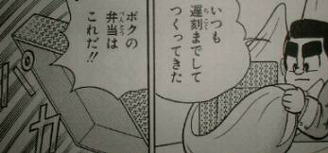 いつも
遅刻までして
つくってきた
ボクの
弁当は
これだ!!
パカ